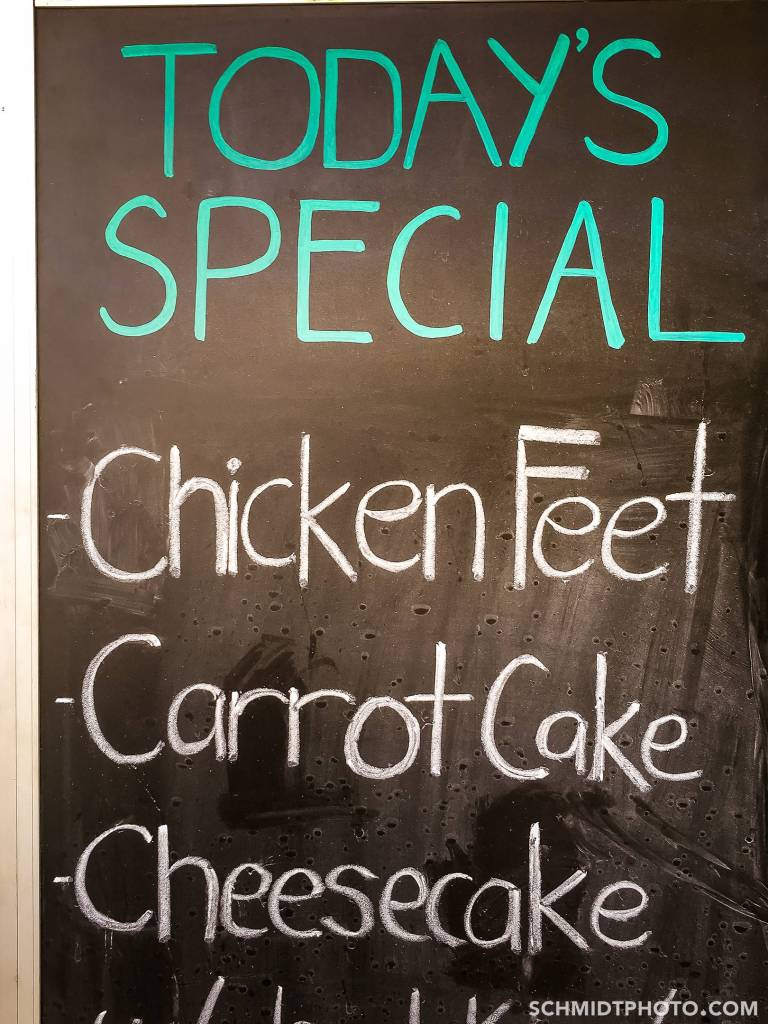 TODAY'S
SPECIAL
-Chicken Feet
-Carrot Cake
-Cheesecake
SCHMIDTPHOTO.COM